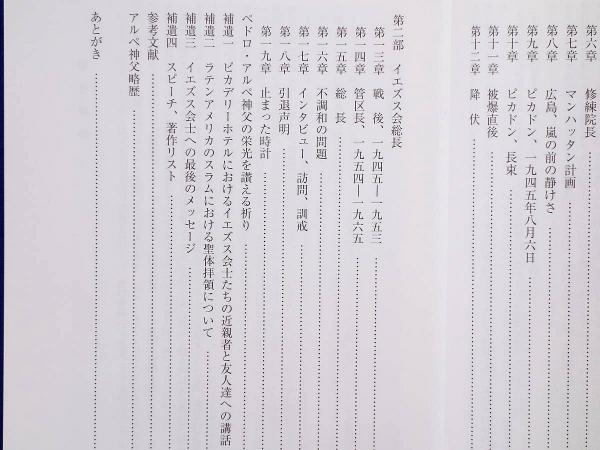 第六章 修練院長
第七章 マンハッタン計画
第八章 広島、嵐の前の静けさ
第九章 ピカドン、一九四五年八月六日
第十章 ピカドン、長束
第十一章 被爆直後
第十二章 降伏
第二部 イエズス会総長
第一三章 戦後、一九四五―一九五三
第一四章 管区長、一九五四―一九六五
第一五章 総長
第一六章 不調和の問題
第一七章 インタビュー、訪問、訓戒
第一八章 引退声明
第一九章 止まった時計
ペドロ・アルペ神父の栄光を讃える祈り
補遺一 ピカデリーホテルにおけるイエズス会士たちの近親者と友人達への講話
補遺二 ラテンアメリカのスラムにおける聖体拝領について
補遺三 イエズス会士への最後のメッセージ
補遺四 スピーチ、著作リスト
参考文献
アルペ神父略歴
あとがき